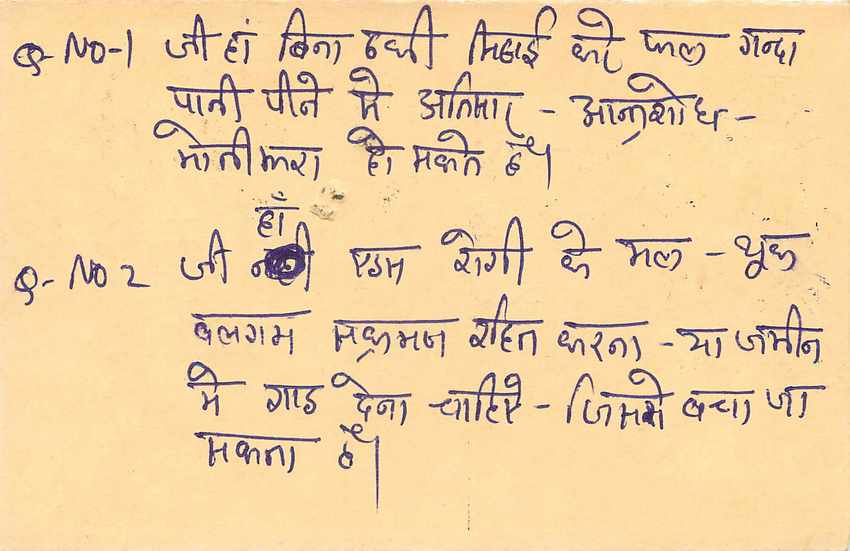 Q- NO-1 जी हां बिना ढकी मिठाई को फल गन्दा
पानी पीने से अतिसार - आन्त्रशोध -
मोतीझरा हो सकते है।
हाँ
Q- NO 2 जी एडस रोगी के मल - थूक
बलगम सक्रमण रहित करना - या जमीन
मे गाड देना चाहिए - जिससे बचा जा
सकता है।